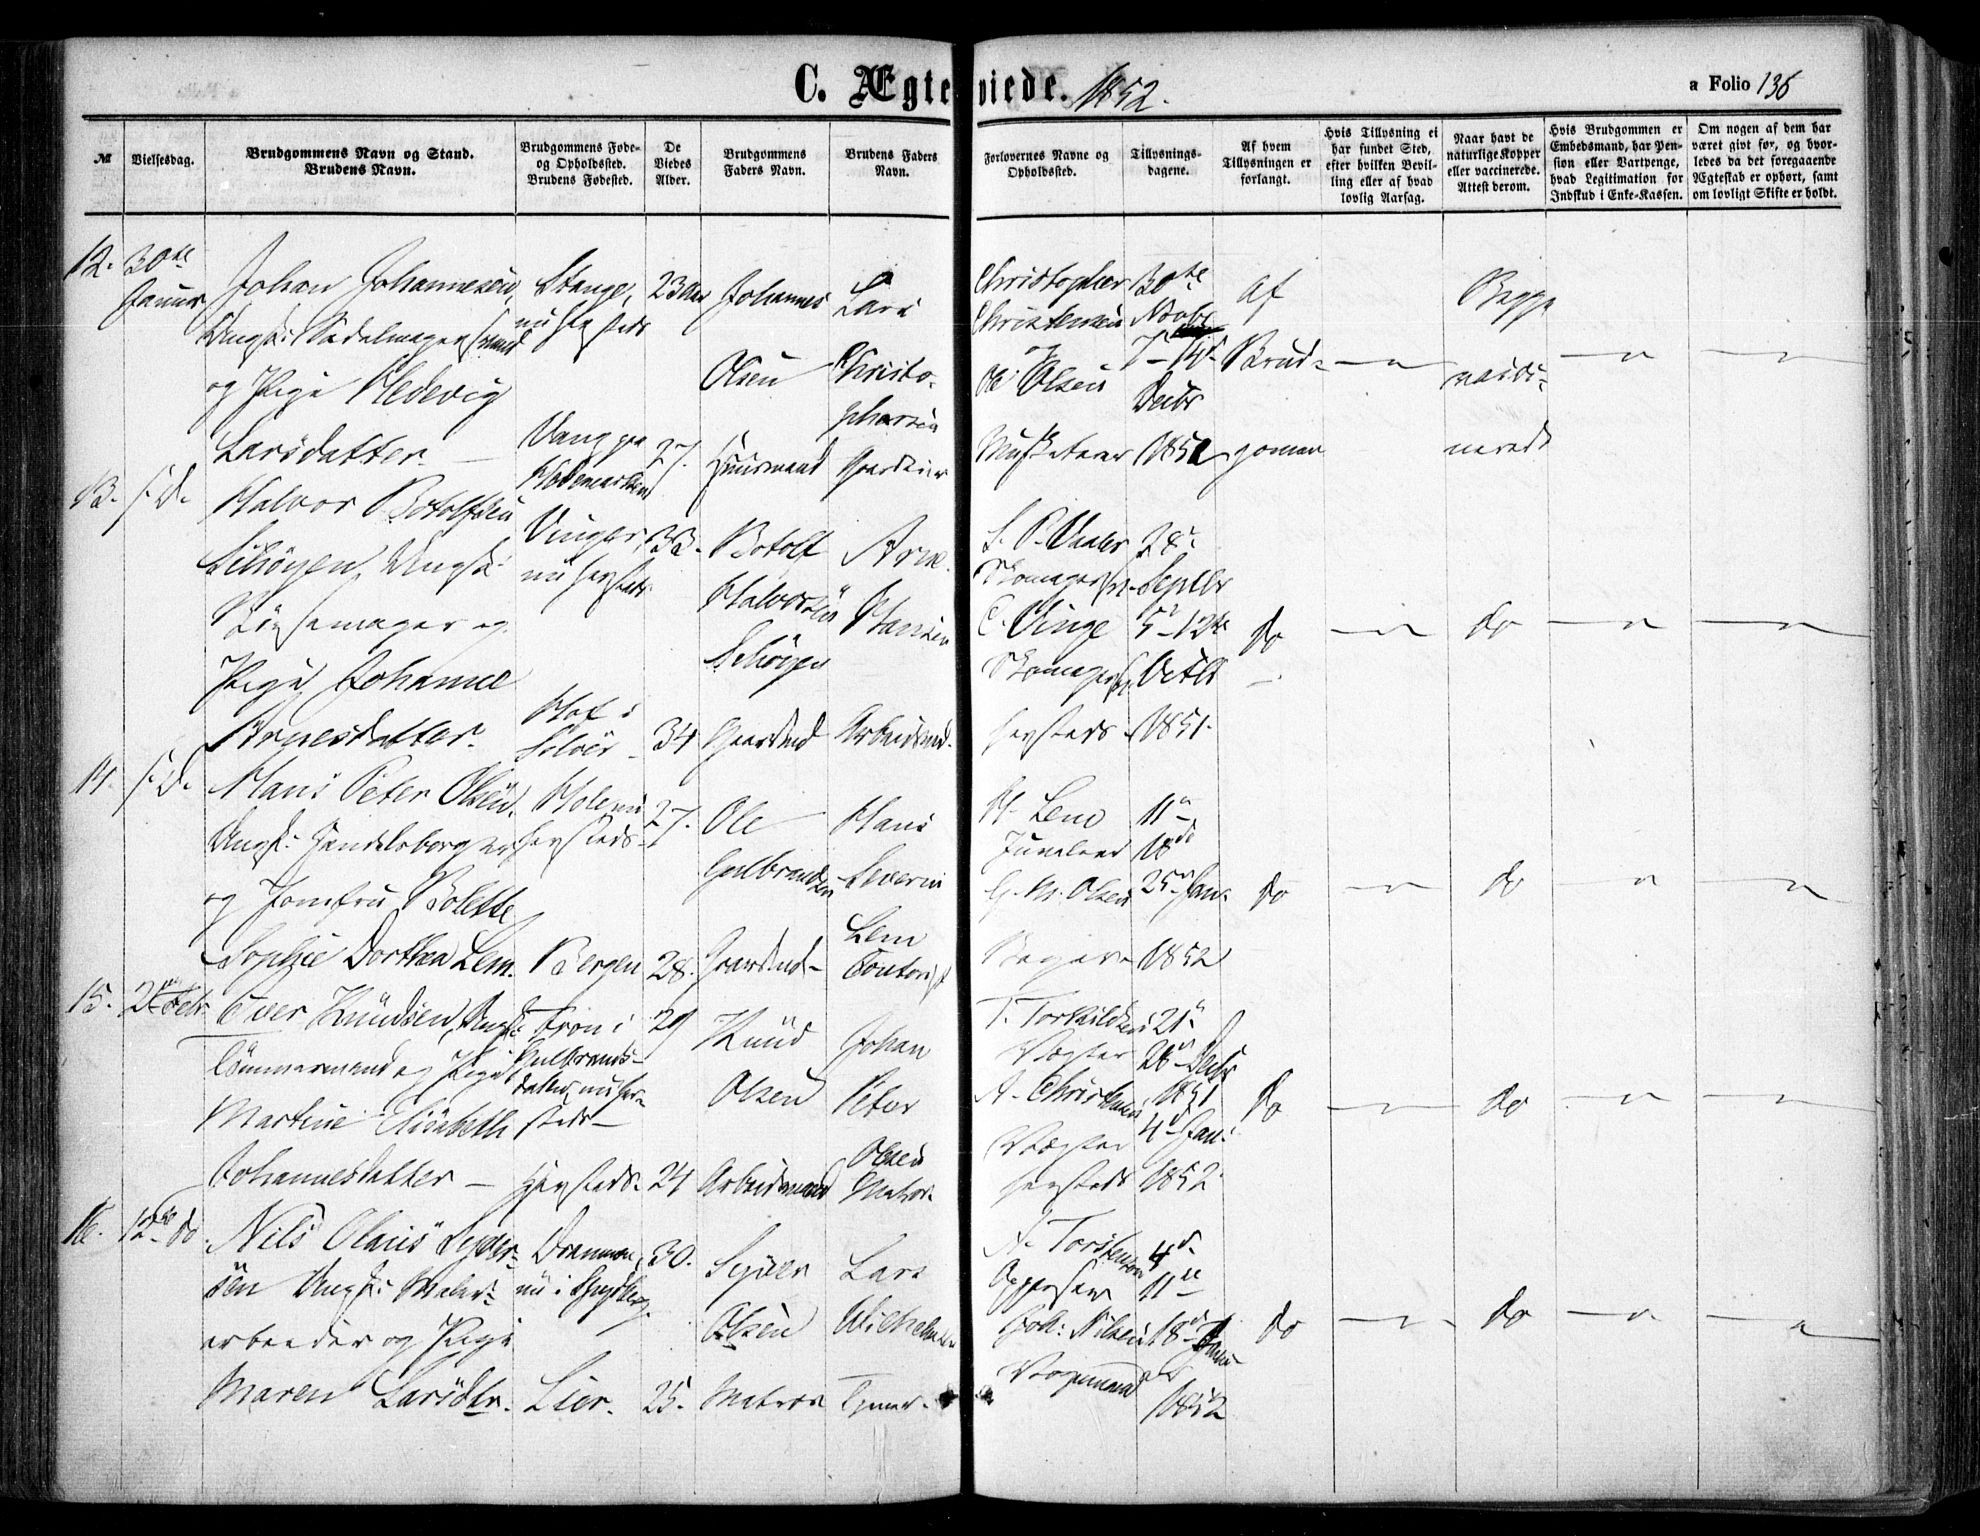 C. Ægteviede. 1852.
a Folio 136
№
Vielsesdag.
Brudgommens Navn og Stand.
Brudens Navn.
Brudgommens Føde-
og Opholdssted.
Brudens Fødested.
De
Viedes
Alder.
Brudgommens
Faders Navn.
Brudens Faders
Navn.
Forlovernes Navne og
Opholdssted.
Tillysnings-
dagene.
Af hvem
Tillysningen er
forlangt.
Hvis Tillysning ei
har fundet Sted,
efter hvilken Bevil-
ling eller af hvad
lovlig Aarsag.
Naar havt de
naturlige Kopper
eller vaccinerede.
Attest derom.
Hvis Brudgommen er
Embedsmand, har Pen-
sion eller Vartpenge,
hvad Legitimation for
Indskud i Enke-Kassen.
Om nogen af dem har
været gift før, og hvor-
ledes da det foregaaende
Ægteskab er ophørt, samt
om lovligt Skifte er holdt.
12. 30te
Januar
Johan Johannesen,
Ungk: Sadelmagersvend
og Pige Hedevig
Larsdatter
Stange,
nu hersteds
Vang paa
Hedemarken
23 Aar
27.
Johannes
Olsen
Huusmand
Lars
Christo-
phersen
Gaardeier
Christopher
Christensen
og
Ole Olsen
Musketerer
30te
Novbr
7 - 14
Decbr
1851
Af
Brud-
gommen
Begge
vacci-
nerede
13. s. D.
Halvor Botolfsen
Schøyen, Ungk:
Bøssemager og
Pige Johanne
Arnesdatter.
Vinger,
nu hersteds.
Hof i
Solør
33.
34
Botolf
Halvorsen
Schøyen
Gaardmd
Arne
Hansen
Arbeidsmd.
S. P. Vaaler
Skomagersv.
E. Vinge
Skomagersv.
hersteds
28
Septbr
5 - 12te
Octbr
1851.
do
do
14. s. D.
Hans Peter Olsen,
Ungk: Handelsborger
og Jomfru Bolette
Sophie Dorthea Lem.
Hole nu
hersteds
Bergen
27.
28.
Ole
Gulbrandsen
Gaardmd
Hans
Severin
Lem
Contorist
H. Lem
Juveleer
G. M. Olsen
Bager
11
18de
25 Jan.
1852
do
do
15. 2den Febr
Iver Knudsen, Ungk:
Tømmermand og Pige
Martine Elisabeth
Johannesdatter
Fron i
Gulbrands-
dalen, nu her-
steds
Hersteds.
29
24
Knud
Olsen
Arbeidsmand
Johan
Peter
Olsen
Matros
T. Torkildsen
Vægter
A. Christensen
Vægter
hersteds
21
28 Decbr
1851
4 Jan:
1852
do
do
16. 12te do.
Nils Olaus Syver-
sen Ungk: Maler-
arbeider og Pige
Maren Larsdtr.
Drammen,
Lier.
30.
25.
Syver
Olsen
Matros
Lars
Wilhelmsen
A. Torstensen
Opperser
Joh: Nilsen
Vognmand
4
11te
18 Janu-
ar
1852
do
do